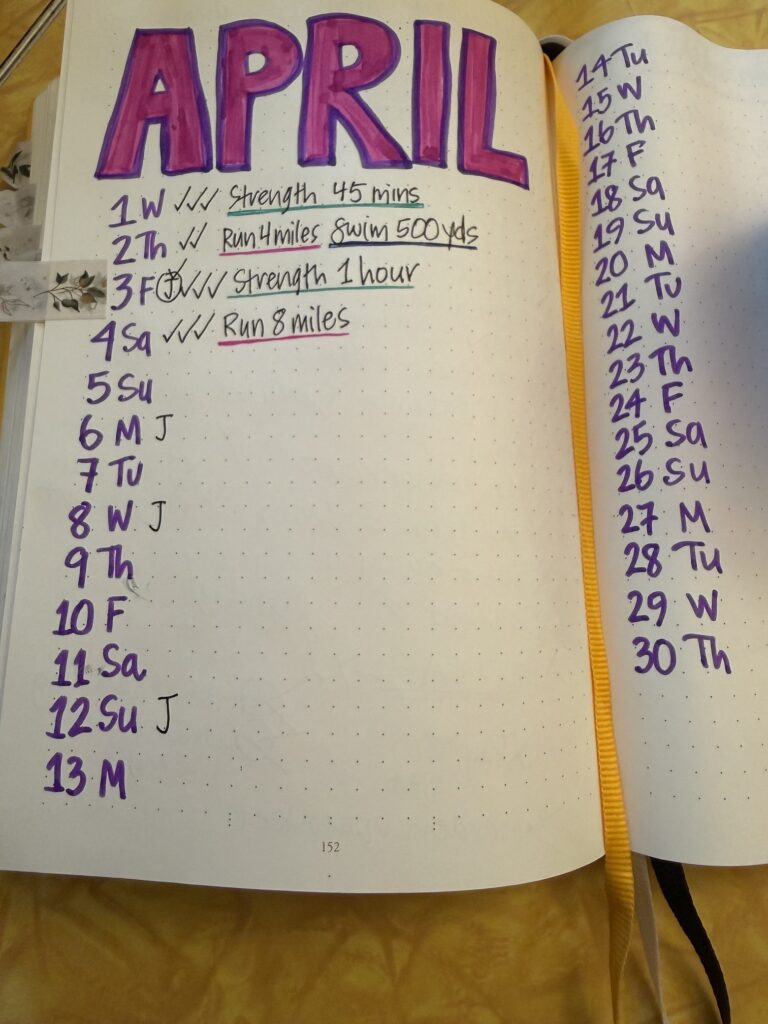 APRIL
1 W ✓✓✓ Strength 45 mins
2 Th ✓✓ Run 4 miles Swim 500 yds
3 F J ✓✓✓✓ Strength 1 hour
4 Sa ✓✓✓ Run 8 miles
5 Su
6 M J
7 Tu
8 W J
9 Th
10 F
11 Sa
12 Su J
13 M
152
14 Tu
15 W
16 Th
17 F
18 Sa
19 Su
20 M
21 Tu
22 W
23 Th
24 F
25 Sa
26 Su
27 M
28 Tu
29 W
30 Th